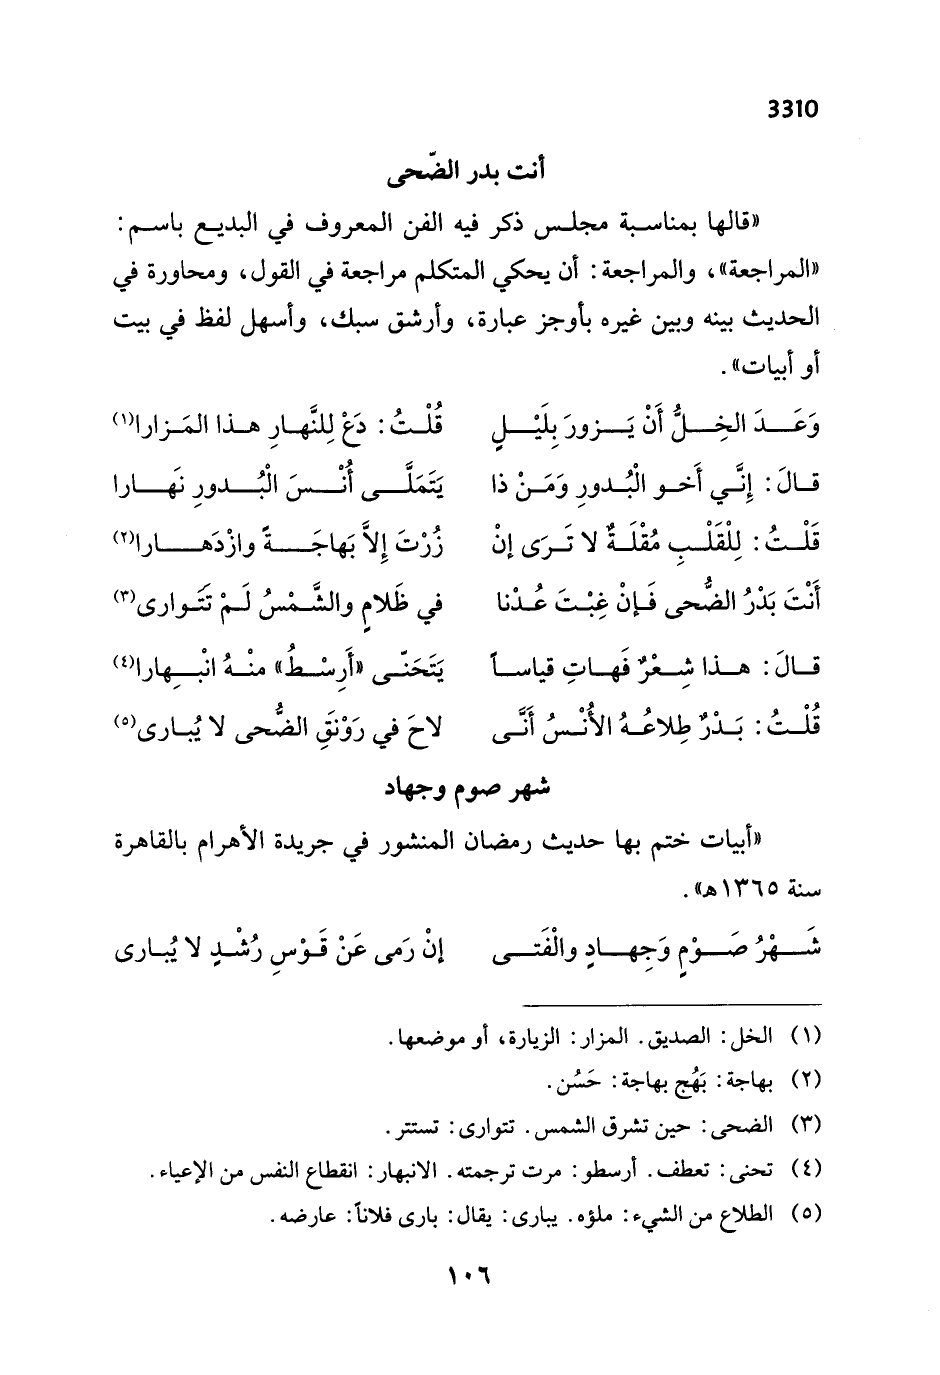 3310
أنت بدر الضّحى
«قالها بمناسبة مجلس ذكر فيه الفن المعروف في البديع باسم:
«المراجعة»، والمراجعة: أن يحكي المتكلم مراجعة في القول، ومحاورة في
الحديث بينه وبين غيره بأوجز عبارة، وأرشق سبك، وأسهل لفظ في بيت
أو أبيات».
وَعَدَ الخِلُّ أَنْ يَزورَ بِلَيْلٍ قُلْتُ: دَعْ لِلنَّهارِ هذا المَزارا(١)
قالَ: إِنَّي أَخو الْبُدورِ وَمَنْ ذا يَتَمَلَّى أُنْسَ الْبُدورِ نَهارا
قَلْتُ: لِلْقَلْبِ مُقْلَةٌ لا تَرَى إنْ زُرْتَ إلاَّ بَهاجَةً وازْدَهارا(٢)
أَنْتَ بَدْرُ الضُّحى فَإنْ غِبْتَ عُدْنا في ظَلامٍ والشَّمْسُ لَمْ تَتَوارى(٣)
قالَ: هذا شِعْرٌ فَهاتِ قياساً يَتَحَنّى «أَرِسْطُ» منْهُ انْبِهارا(٤)
قُلْتُ: بَدْرٌ طِلاعُهُ الأُنْسُ أَنَّى لاحَ في رَوْنَقِ الضُّحى لا يُبارى(٥)
شهر صوم وجهاد
«أبيات ختم بها حديث رمضان المنشور في جريدة الأهرام بالقاهرة
سنة ١٣٦٥هـ».
شَهْرُ صَوْمٍ وَجِهادٍ والْفَتى إنْ رَمى عَنْ قَوْسِ رُشْدٍ لا يُبارى
(١) الخل: الصديق. المزار: الزيارة، أو موضعها.
(٢) بهاجة: بَهُج بهاجة: حَسُن.
(٣) الضحى: حين تشرق الشمس. تتوارى: تستتر.
(٤) تحنى: تعطف. أرسطو: مرت ترجمته. الانبهار: انقطاع النفس من الإعياء.
(٥) الطلاع من الشيء: ملؤه. يبارى: يقال: بارى فلاناً: عارضه.
١٠٦